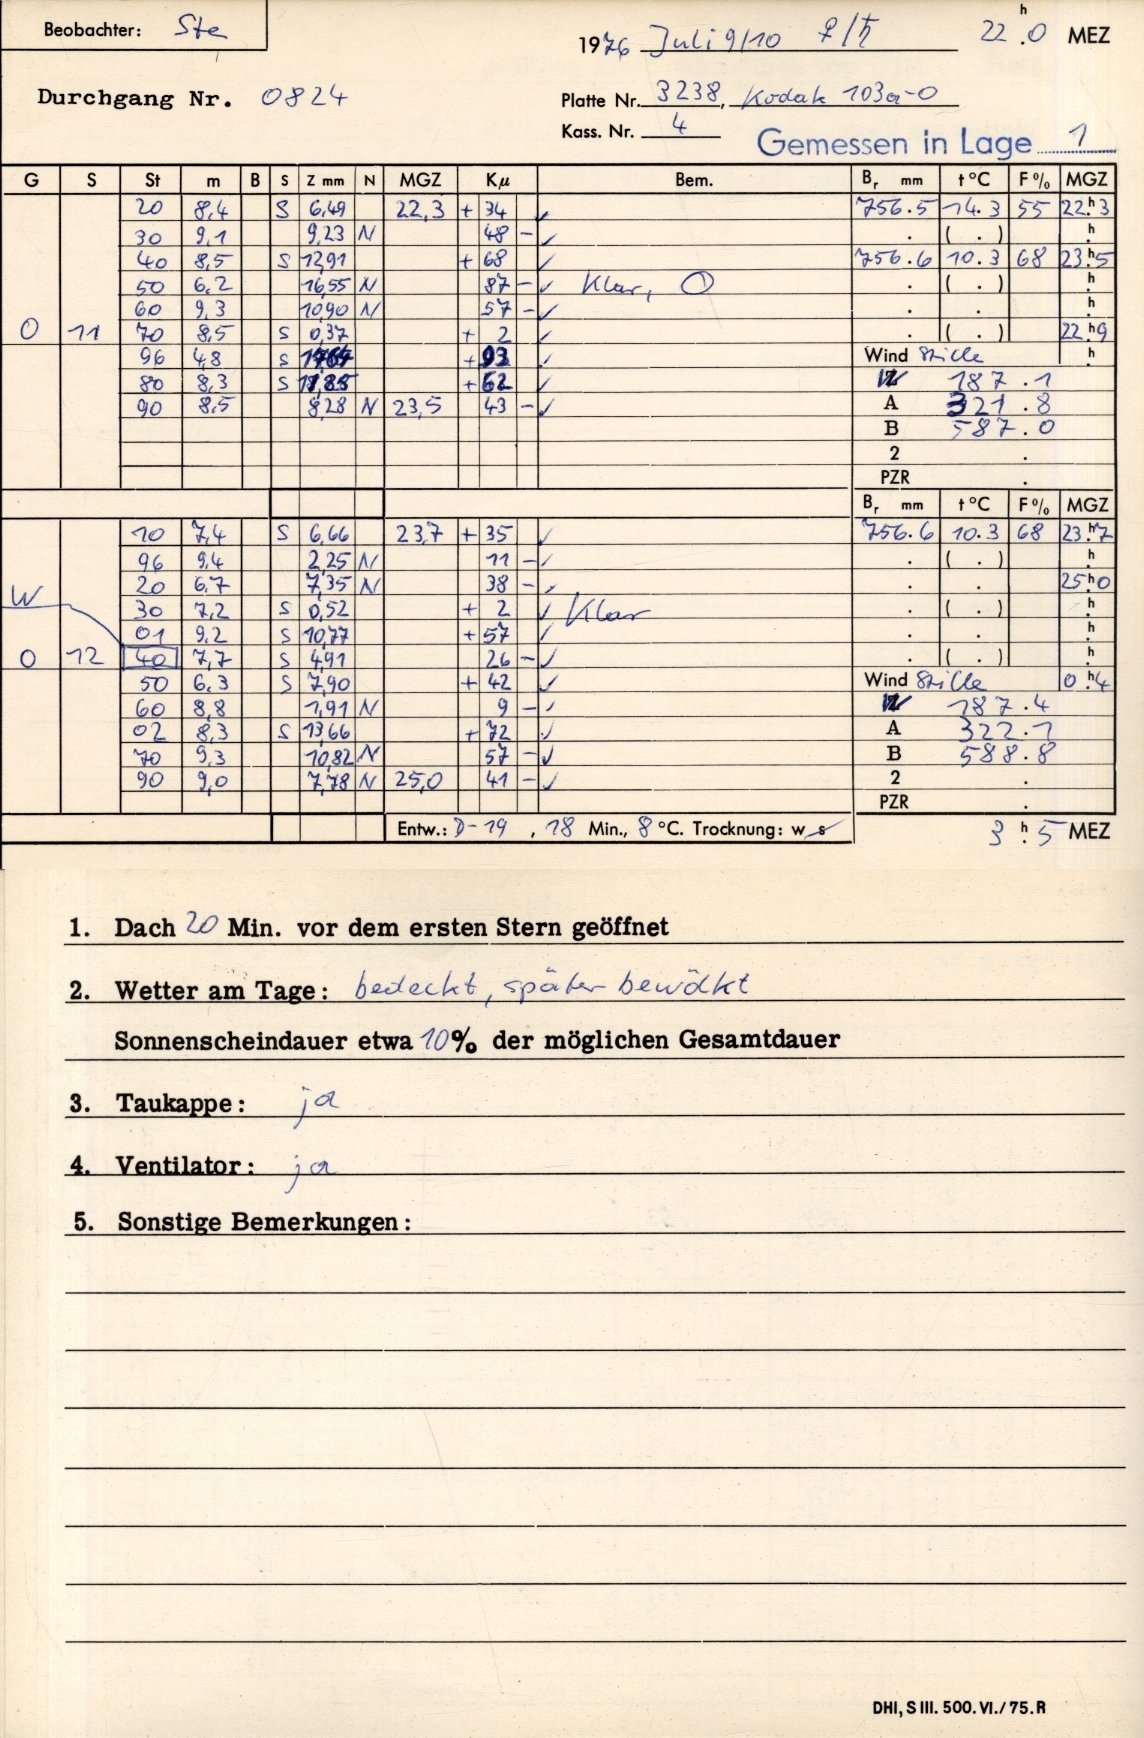 Beobachter: Ste
1976 Juli 9/10 ♀/♄ 22.h0 MEZ
Durchgang Nr. 0824
Platte Nr. 3238, Kodak 103a-O
Kass. Nr. 4
Gemessen in Lage 1
G S St m B S Z mm N MGZ Kμ Bem. Br mm t °C F % MGZ
20 8,4 S 6,49 22,3 + 34 ✓ 756.5 14.3 55 22.h3
30 9,1 9,23 N 48 - ✓ . ( . ) h
40 8,5 S 12,91 + 68 ✓ 756.6 10.3 68 23.h5
50 6,2 16,55 N 87 - ✓ Klar, . ( . ) h
60 9,3 10,90 N 57 - ✓ . . h
O 11 70 8,5 S 0,37 + 2 ✓ . ( . ) 22.h9
96 4,8 S + 93 ✓ Wind Stille h
80 8,3 S 11,85 + 62 ✓ 187.1
90 8,5 8,28 N 23,5 43 - ✓ A 321.8
B 587.0
2 .
PZR .
Br mm t °C F % MGZ
10 7,4 S 6,66 23,7 + 35 ✓ 756.6 10.3 68 23.h7
96 9,4 2,25 N 11 - ✓ . ( . ) h
W 20 6,7 7,35 N 38 - ✓ . . 25.h0
30 7,2 S 0,52 + 2 ✓ Klar . ( . ) h
01 9,2 S 10,77 + 57 ✓ . . h
O 12 40 7,7 S 4,91 26 - ✓ . ( . ) h
50 6,3 S 7,90 + 42 ✓ Wind Stille 0.h4
60 8,8 1,91 N 9 - ✓ 187.4
02 8,3 S 13,66 + 72 ✓ A 322.1
70 9,3 10,82 N 57 - ✓ B 588.8
90 9,0 7,78 N 25,0 41 - ✓ 2 .
PZR .
Entw.: D-19, 18 Min., 8 °C. Trocknung: w s
3.h5 MEZ
1. Dach 20 Min. vor dem ersten Stern geöffnet
2. Wetter am Tage: bedeckt, später bewölkt
Sonnenscheindauer etwa 10% der möglichen Gesamtdauer
3. Taukappe: ja
4. Ventilator: ja
5. Sonstige Bemerkungen:
DHI, S III. 500. VI./75. R